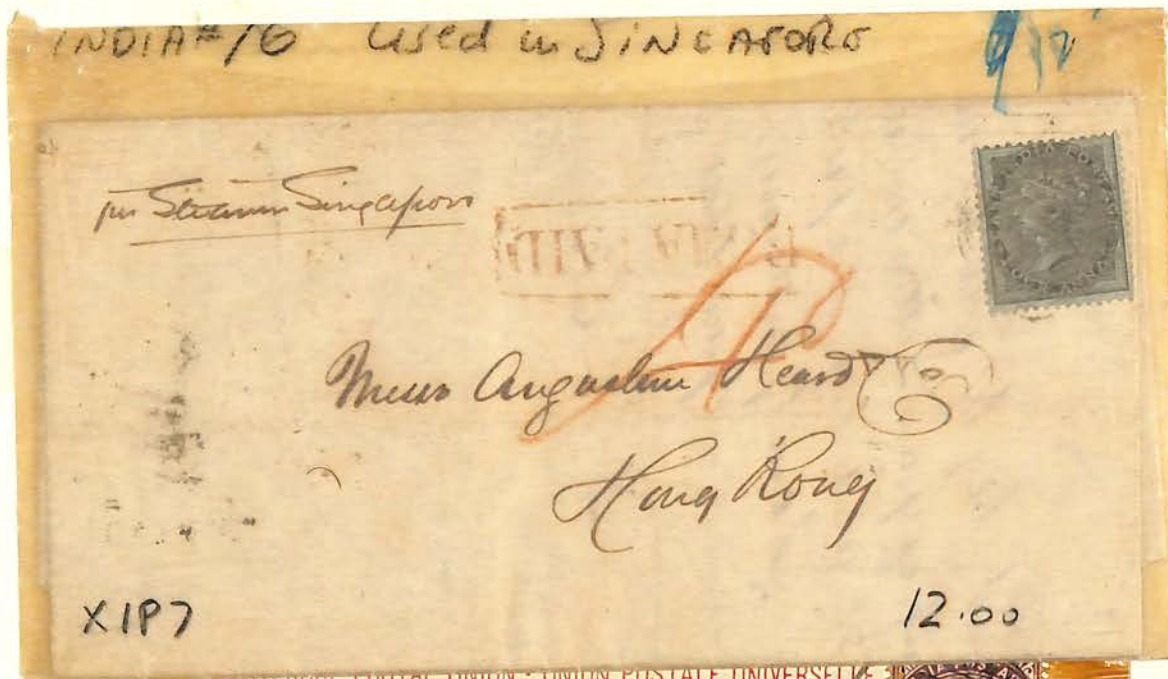 INDIA #16 Used in SINGAPORE
9/12
per Steamer Singapore
INDIA PAID
4
Messrs Augustine Heard & Co
Hong Kong
X1P7
12.00
POSTAL UNION · UNION POSTALE UNIVERSELLE